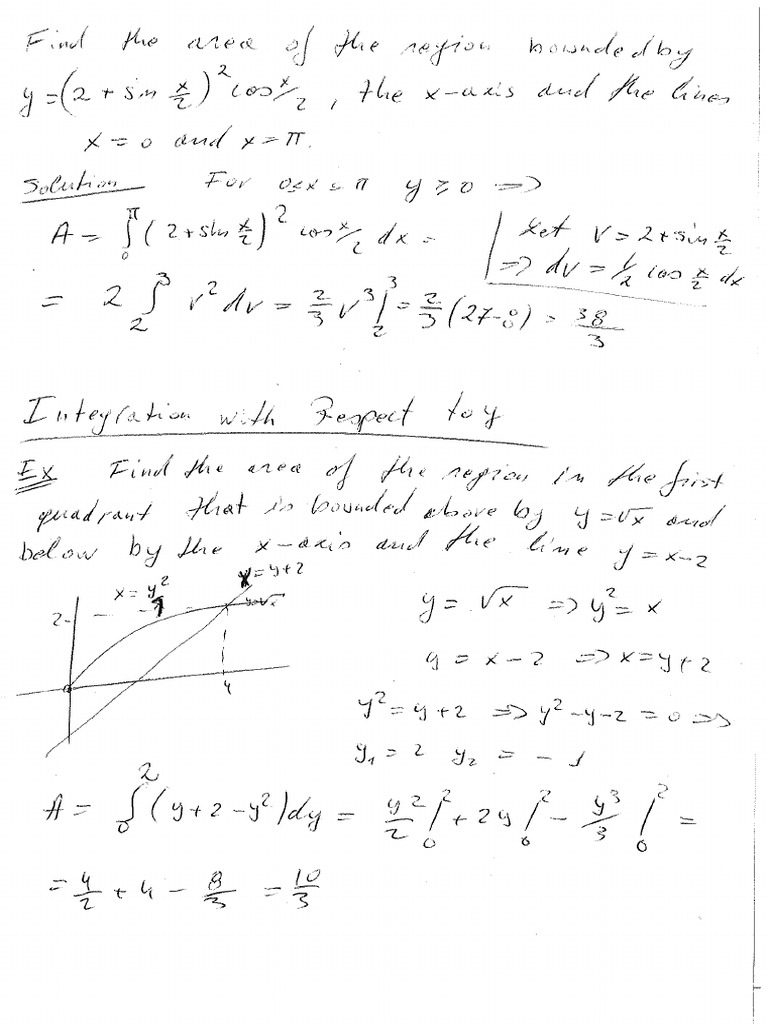 Find the area of the region bounded by
y = (2 + sin x/2)² cos x/2, the x-axis and the lines
x = 0 and x = π.
Solution For 0≤x≤π y ≥ 0 =>
A = ∫₀^π (2 + sin x/2)² cos x/2 dx = | Let v = 2 + sin x/2
=> dv = 1/2 cos x/2 dx
= 2 ∫₂³ v² dv = 2/3 v³ |₂³ = 2/3 (27-8) = 38/3
Integration with Respect to y
Ex Find the area of the region in the first
quadrant that is bounded above by y = √x and
below by the x-axis and the line y = x-2
x = y+2
x = y²
2
y=√x
4
y = √x => y² = x
y = x-2 => x = y+2
y² = y+2 => y²-y-2 = 0 =>
y₁ = 2 y₂ = -1
A = ∫₀² (y+2-y²)dy = y²/2 |₀² + 2y |₀² - y³/3 |₀² =
= 4/2 + 4 - 8/3 = 10/3